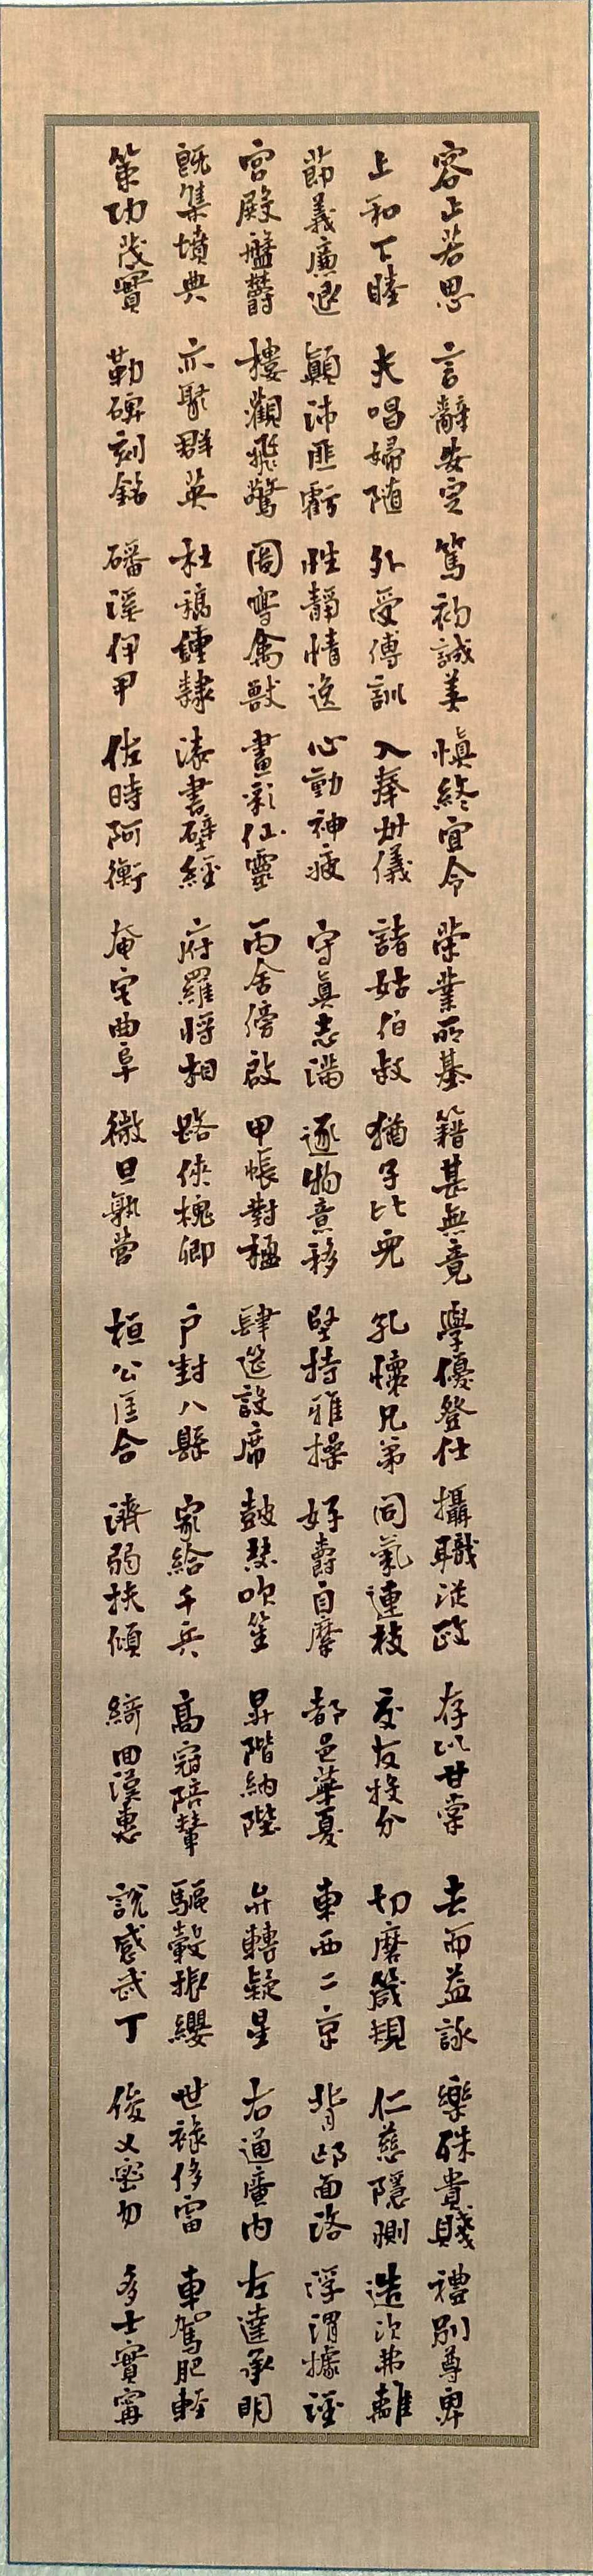 容止若思 言辭安定 篤初誠美 慎終宜令 榮業所基 籍甚無竟 學優登仕 攝職從政 存以甘棠 去而益詠 樂殊貴賤 禮別尊卑
上和下睦 夫唱婦随 外受傅訓 入奉母儀 諸姑伯叔 猶子比兒 孔懷兄弟 同氣連枝 交友投分 切磨箴規 仁慈隱惻 造次弗離
節義廉退 顛沛匪虧 性靜情逸 心動神疲 守真志滿 逐物意移 堅持雅操 好爵自縻 都邑華夏 東西二京 背邙面洛 浮渭據涇
宮殿盤鬱 樓觀飛驚 圖寫禽獸 畫彩仙靈 丙舍傍啟 甲帳對楹 肆筵設席 鼓瑟吹笙 昇階納陛 弁轉疑星 右通廣內 左達承明
既集墳典 亦聚群英 杜稿鍾隸 漆書壁經 府羅將相 路俠槐卿 户封八縣 家給千兵 高冠陪輦 驅轂振纓 世祿侈富 車駕肥輕
策功茂實 勒碑刻銘 磻溪伊尹 佐時阿衡 奄宅曲阜 微旦孰營 桓公匡合 濟弱扶傾 綺回漢惠 說感武丁 俊乂密勿 多士實寧